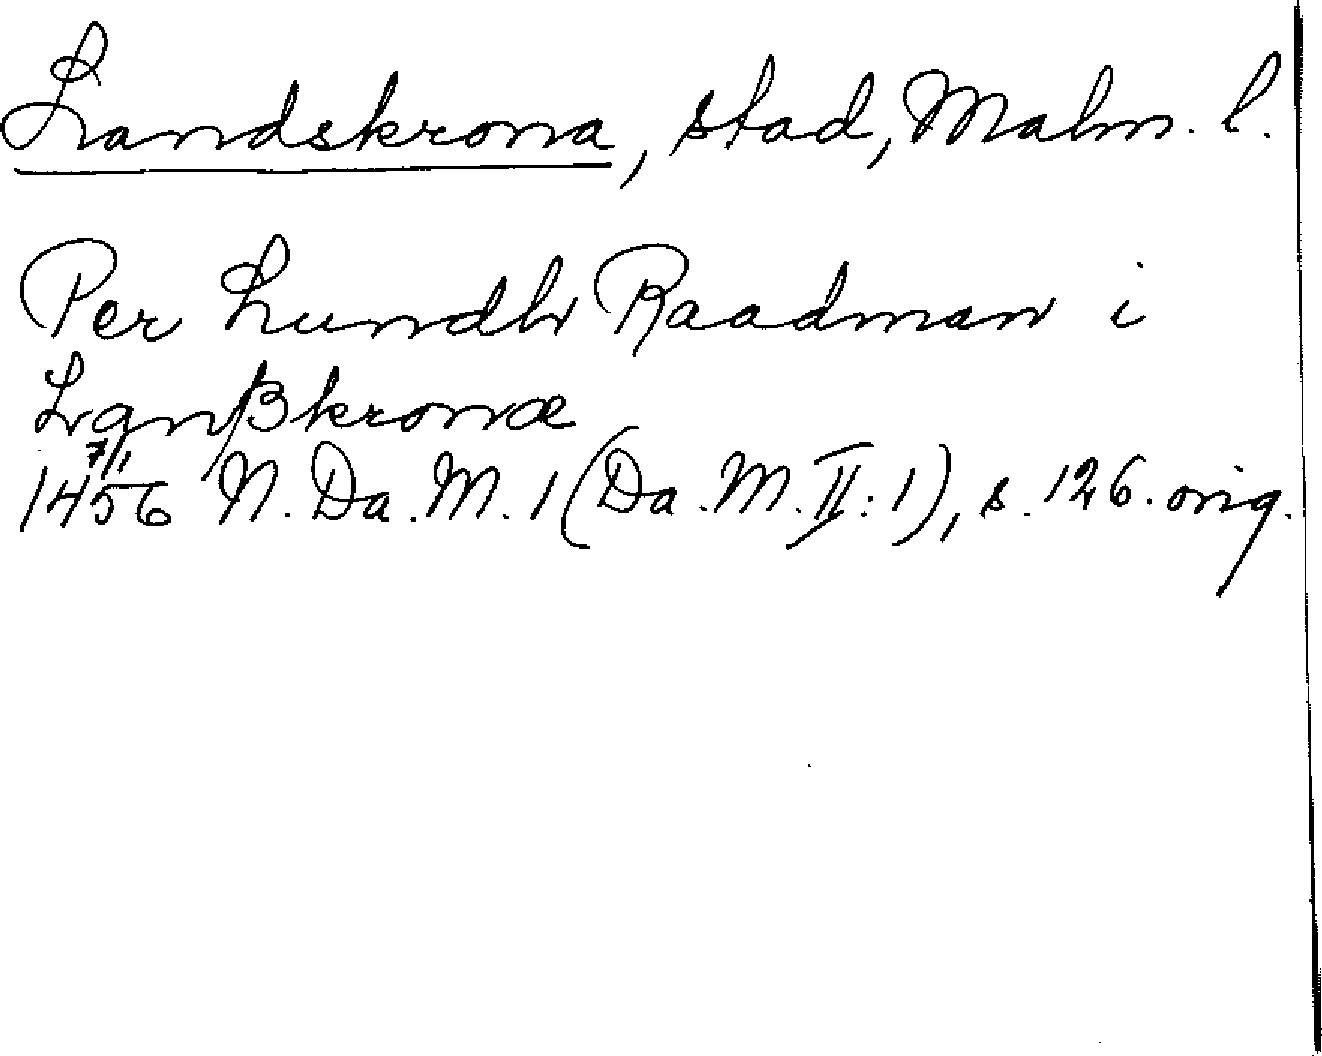 Landskrona, stad, Malm. l.
Per Lundh Raadman i
Lanßkronæ
7/1
1456 N. Da. M. 1 (Da. M. II: 1), s. 126. orig.